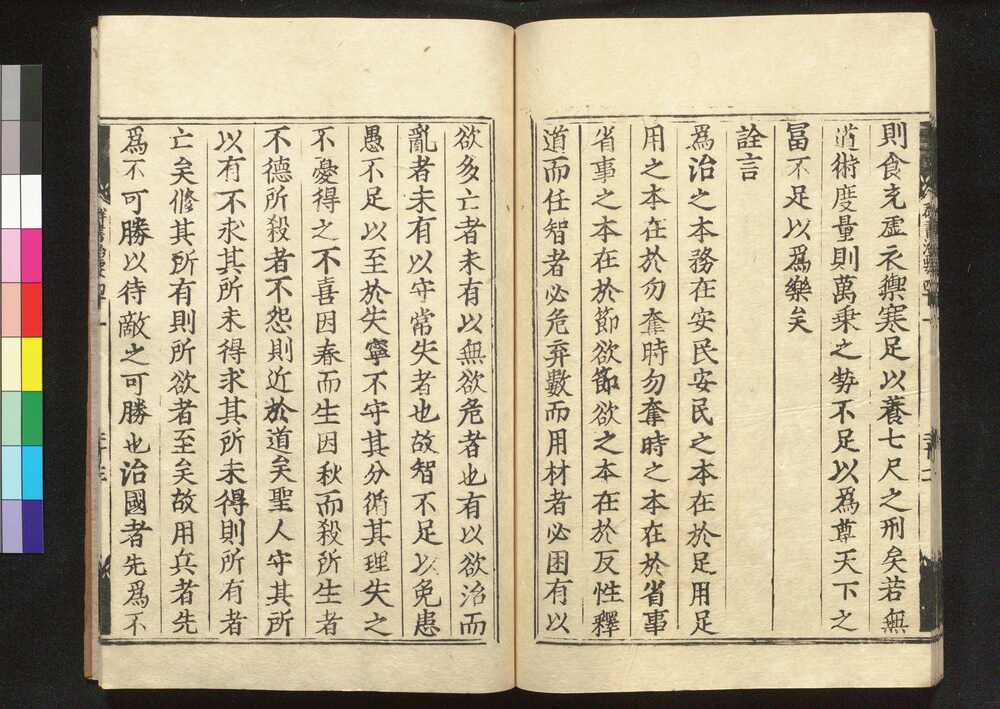 則食充虛衣禦寒足以養七尺之刑矣若無
道術度量則萬乘之勢不足以為尊天下之
冨不足以為樂矣
詮言
為治之本務在安民安民之本在於足用足
用之本在於勿奪時勿奪時之本在於省事
省事之本在於節欲節欲之本在於反性釋
道而任智者必危弃數而用材者必困有以
欲多亡者未有以無欲危者也有以欲治而
亂者未有以守常失者也故智不足以免患
愚不足以至於失寧不守其分循其理失之
不憂得之不喜因春而生因秋而殺所生者
不德所殺者不怨則近於道矣聖人守其所
以有不求其所未得求其所未得則所有者
亡矣脩其所有則所欲者至矣故用兵者先
為不可勝以待敵之可勝也治國者先為不